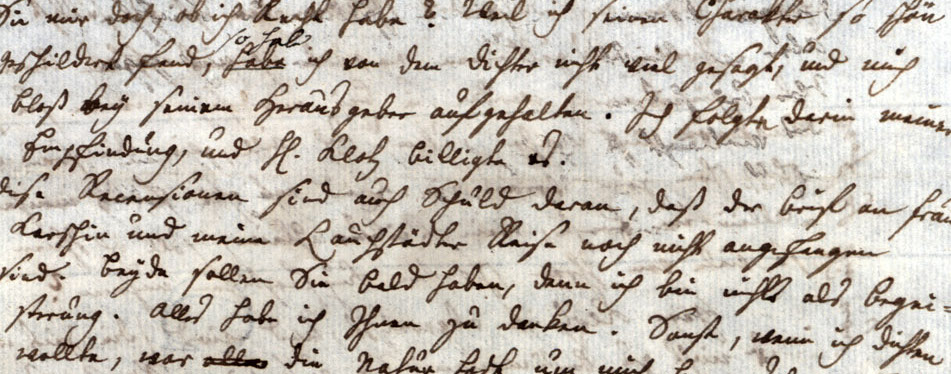 Sie mir doch, ob ich Recht habe? Weil ich seinen Charakter so schön
geschildert fand, so hab ich von dem Dichter nicht viel gesagt, und mich
bloß bey seinem Herausgeber aufgehalten. Ich folgte darin meiner
Empfindung, und H. Klotz billigte es.
diese Recensionen sind auch Schuld daran, daß der brief an Frau
Karschin und meine Lauchstädter Reise noch nicht angefangen
sind. beyde sollen Sie bald haben, denn ich bin nichts als begei-
sterung. Alles habe ich Ihnen zu danken. Sonst, wenn ich dichten
wollte, war die Natur um mich